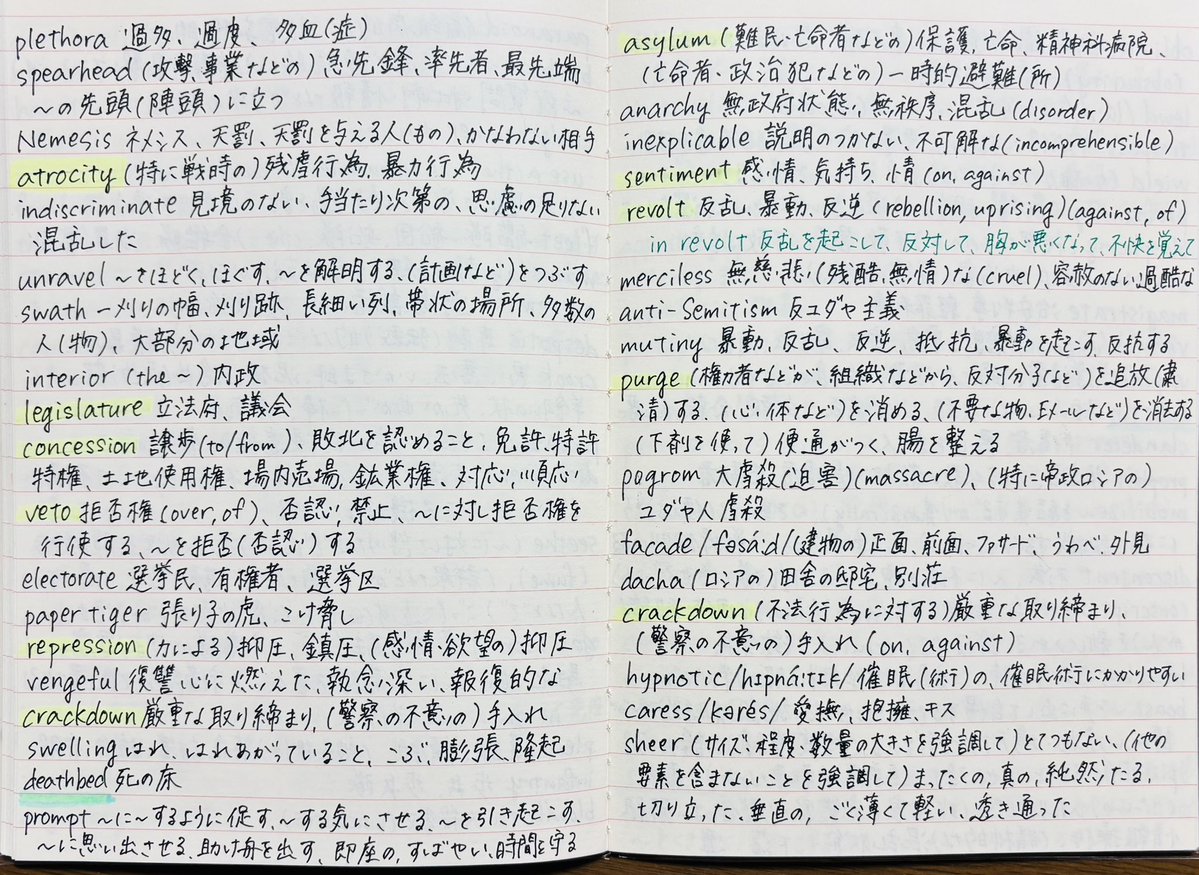 plethora 過多、過度、多血(症)
spearhead (攻撃、事業などの) 急先鋒、率先者、最先端
〜の先頭(陣頭)に立つ
Nemesis ネメシス、天罰、天罰を与える人(もの)、かなわない相手
atrocity (特に戦時の)残虐行為、暴力行為
indiscriminate 見境のない、手当たり次第の、思慮の足りない
混乱した
unravel 〜をほどく、ほぐす、〜を解明する、(計画など)をつぶす
swath 一刈りの幅、刈り跡、長細い列、帯状の場所、多数の
人(物)、大部分の地域
interior (the 〜) 内政
legislature 立法府、議会
concession 譲歩(to/from)、敗北を認めること、免許、特許
特権、土地使用権、場内売場、鉱業権、対応、順応
veto 拒否権(over, of)、否認、禁止、〜に対し拒否権を
行使する、〜を拒否(否認)する
electorate 選挙民、有権者、選挙区
paper tiger 張り子の虎、こけ脅し
repression (力による)抑圧、鎮圧、(感情・欲望の)抑圧
vengeful 復讐心に燃えた、執念深い、報復的な
crackdown 厳重な取り締まり、(警察の不意の)手入れ
swelling はれ、はれあがっていること、こぶ、膨張、隆起
deathbed 死の床
prompt 〜に〜するように促す、〜する気にさせる、〜を引き起こす、
〜に思い出させる、助け舟を出す、即座の、すばやい、時間を守る
asylum (難民・亡命者などの)保護、亡命、精神科病院、
(亡命者・政治犯などの)一時的避難(所)
anarchy 無政府状態、無秩序、混乱(disorder)
inexplicable 説明のつかない、不可解な(incomprehensible)
sentiment 感情、気持ち、情(on, against)
revolt 反乱、暴動、反逆(rebellion, uprising)(against, of)
in revolt 反乱を起こして、反対して、胸が悪くなって、不快を覚えて
merciless 無慈悲(残酷、無情)な(cruel)、容赦のない、過酷な
anti-Semitism 反ユダヤ主義
mutiny 暴動、反乱、反逆、抵抗、暴動を起こす、反抗する
purge (権力者などが、組織などから、反対分子など)を追放(粛
清)する、(心、体など)を清める、(不要な物、Eメールなど)を消去する
(下剤を使って)便通がつく、腸を整える
pogrom 大虐殺(迫害)(massacre)、(特に帝政ロシアの)
ユダヤ人虐殺
facade/fəsáːd/(建物の)正面、前面、ファサード、うわべ、外見
dacha (ロシアの)田舎の邸宅、別荘
crackdown (不法行為に対する)厳重な取り締まり、
(警察の不意の)手入れ(on, against)
hypnotic/hɪpnáːtɪk/ 催眠(術)の、催眠術にかかりやすい
caress/kərés/ 愛撫、抱擁、キス
sheer (サイズ・程度・数量の大きさを強調して)とてつもない、(他の
要素を含まないことを強調して)まったくの、真の、純然たる、
切り立った、垂直の、ごく薄くて軽い、透き通った